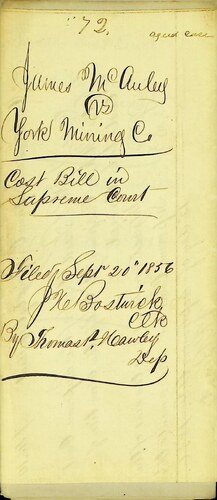 72.
agreed case
James McAuley
vs
York Mining Co
Cost Bill in
Supreme Court
Filed Sept 20th 1856
J H Bostwick
Clk
By Thomas P. Hawley
Dep